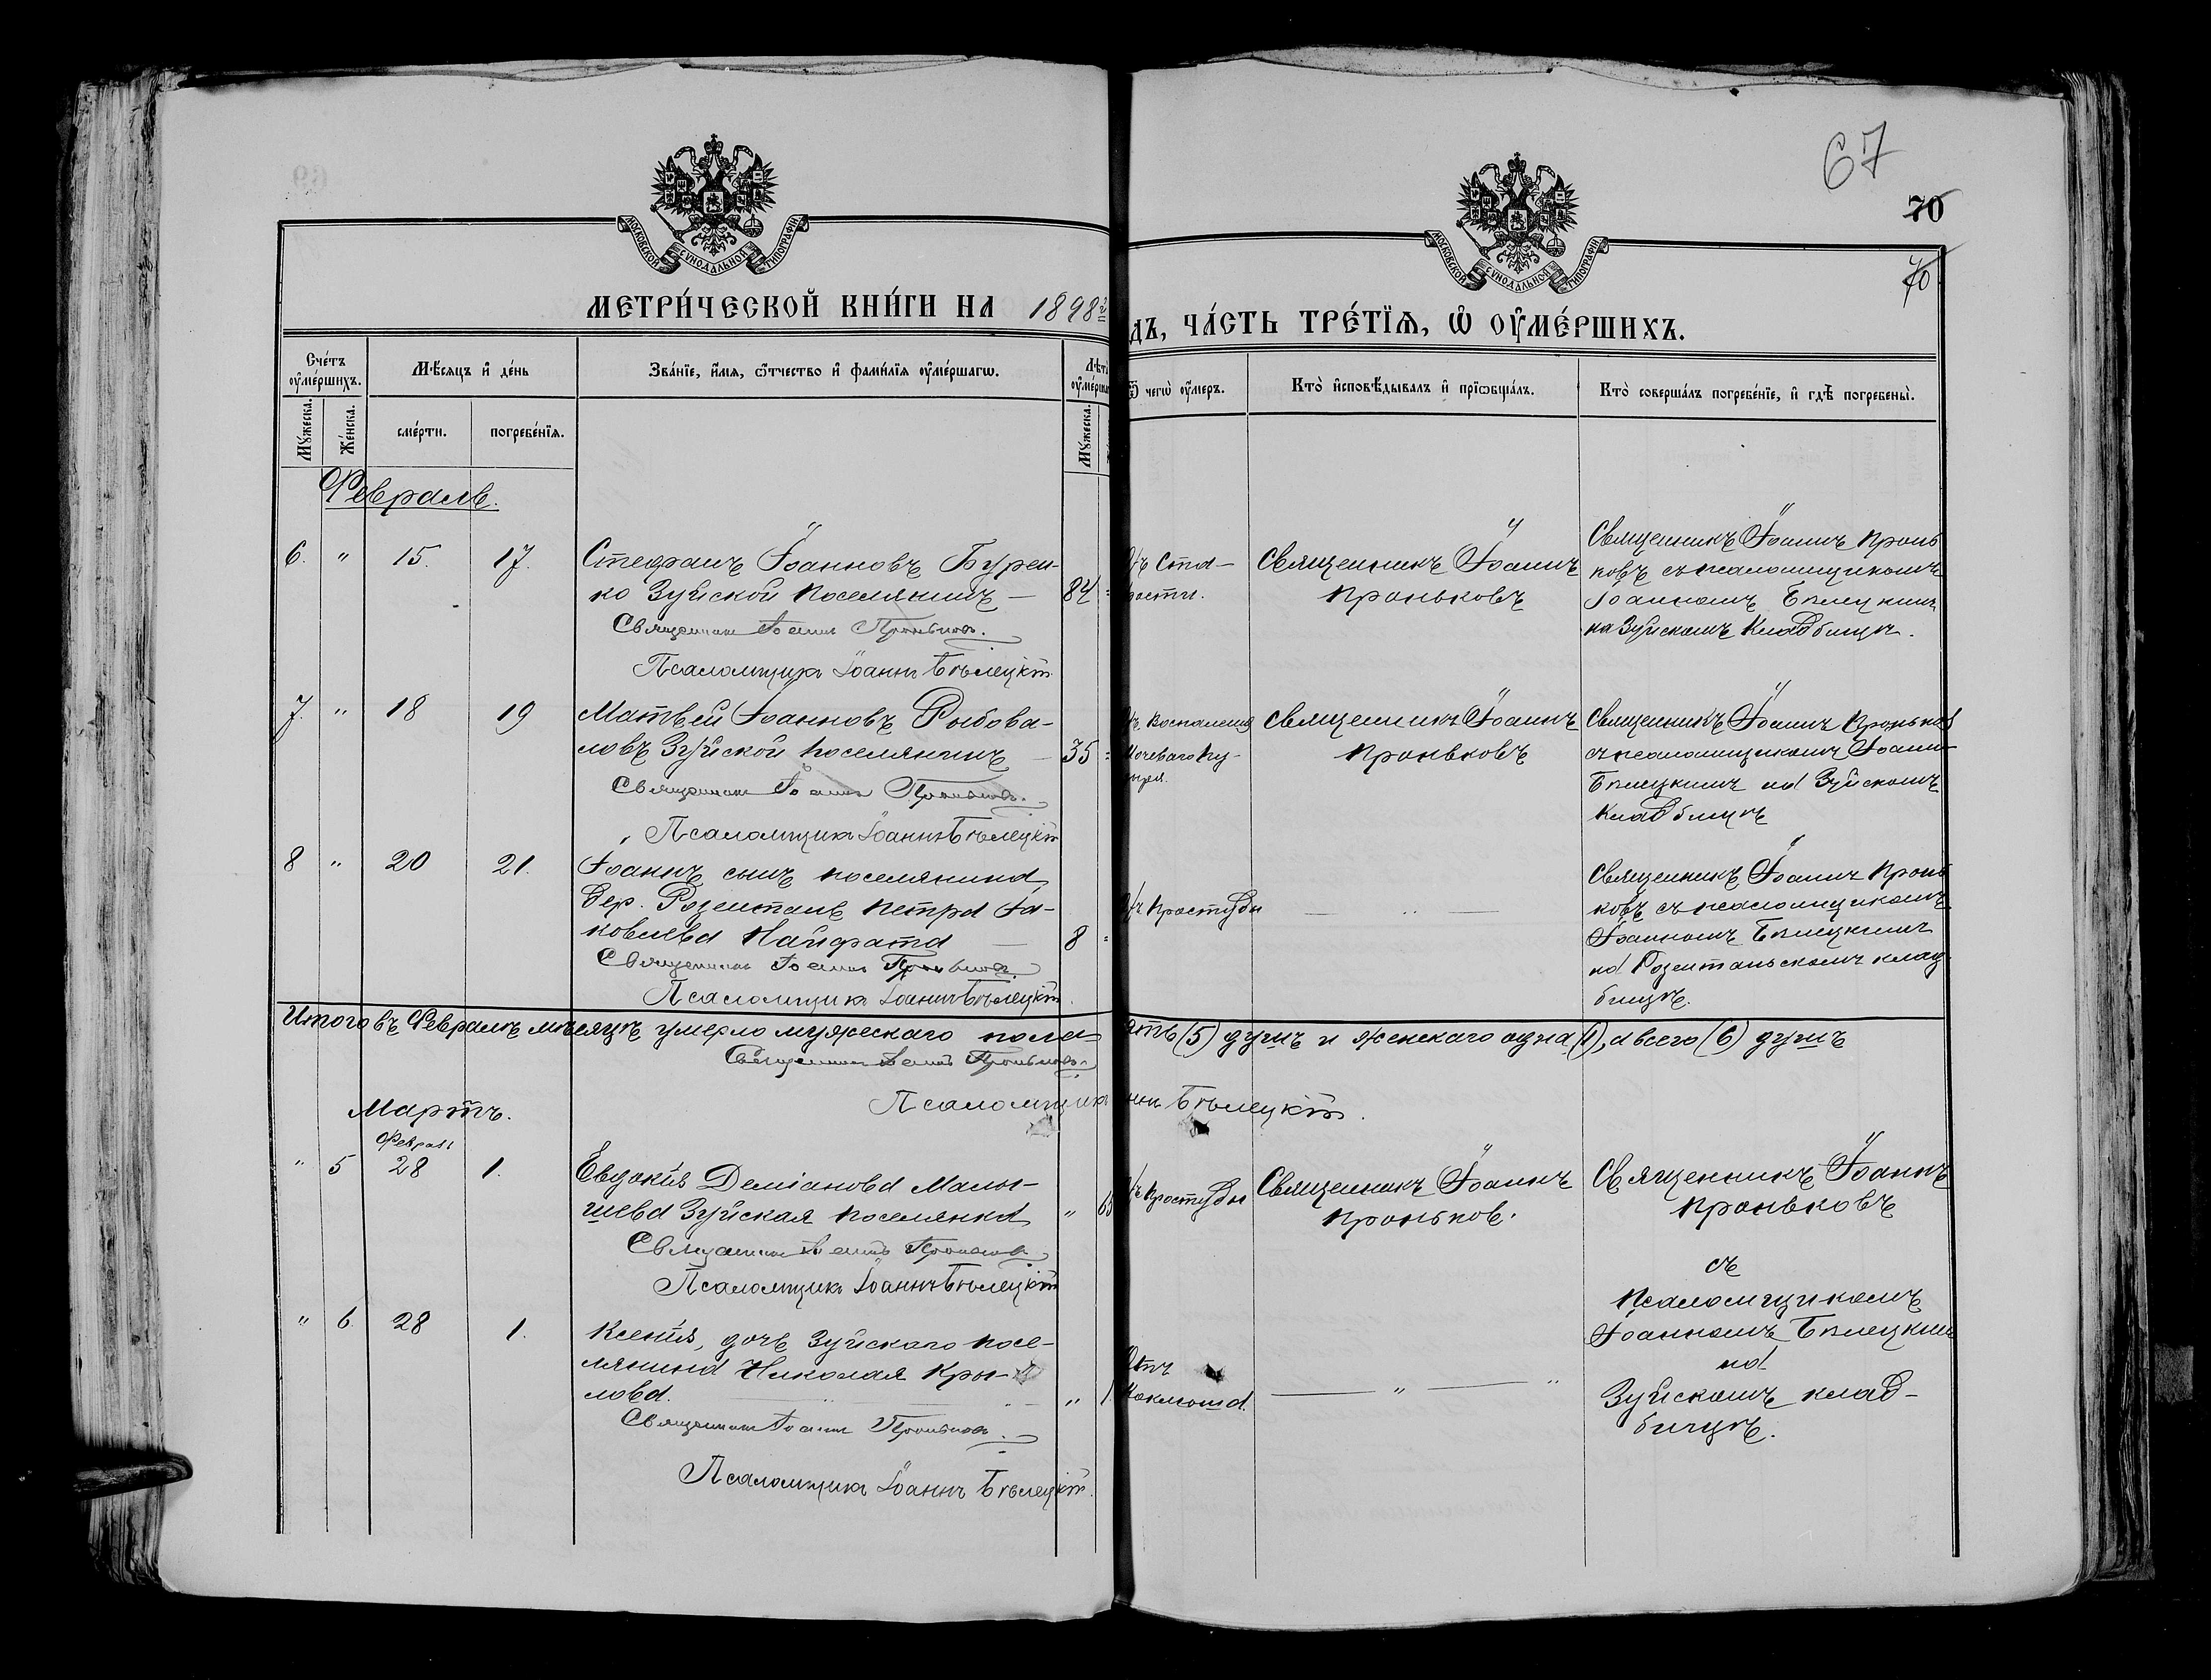 67
70
70
МОСКОВСКОЙ СѴНОДАЛЬНОЙ ТИПОГРАФІИ
МОСКОВСКОЙ СѴНОДАЛЬНОЙ ТИПОГРАФІИ
МЕТРИ́ЧЕСКОЙ КНИ́ГИ НА 1898
ДЪ, ЧА́СТЬ ТРЕ́ТЇѦ, Ѡ҆ ОУ҆МЕ́РШИХЪ.
Сче́тъ оу҆ме́ршихъ.
Мꙋ́жеска.
Же́нска.
Мѣ́сяцъ и҆ де́нь
сме́рти.
погребе́нїѧ.
Зва́нїе, и҆́мѧ, ѻ҆́тчество и҆ фамі́лїѧ оу҆ме́ршагѡ.
Мꙋ́жеска.
Ѿ чегѡ̀ оу҆́меръ.
Кто̀ и҆сповѣ́дывалъ и҆ прїѡбща́лъ.
Кто̀ соверша́лъ погребе́нїе, и҆ гдѣ̀ погребены̀.
Февраль.
6. " 15. 17.
Стефанъ Іоанновъ Бурен-
ко Зуйской поселянинъ — 84
Священникъ Іоаннъ Проньковъ.
Псаломщикъ Іоаннъ Бѣлецкій
Отъ ста-
рости.
Священникъ Іоаннъ
Проньковъ
Священникъ Іоаннъ Пронь
ковъ съ псаломщикомъ
Іоанномъ Бѣлецкимъ
на Зуйскомъ Кладбищѣ.
7. " 18 19
Матвей Іоанновъ Рыбова-
ловъ Зуйской поселянинъ — 35
Священникъ Іоаннъ Проньковъ.
Псаломщикъ Іоаннъ Бѣлецкій
воспаленія
мочеваго пу-
зыря.
Священникъ Іоаннъ
Проньковъ
Священникъ Іоаннъ Проньков
съ псаломщикомъ Іоанн
Бѣлецкимъ на Зуйскомъ
Кладбищѣ
8 " 20 21.
Іоаннъ сынъ поселянина
дер. Розенталь Петра Іа-
ковлева Найфата — 8
Священникъ Іоаннъ Проньковъ.
Псаломщикъ Іоаннъ Бѣлецкій.
Отъ простуды
— " —
Священникъ Іоаннъ Пронь
ковъ съ псаломщикомъ
Іоанномъ Бѣлецкимъ
на Розентальскомъ клад
бищѣ.
Итого въ Февралѣ мѣсяцѣ умерло мужескаго пола
ять (5) душъ и женскаго одна (1), а всего (6) душъ
Священникъ Іоаннъ Проньковъ.
Псаломщикъ
ннъ Бѣлецкій.
Мартъ.
Февраль
" 5 28 1.
Евдокія Деміанова Малы-
шева Зуйская поселянка "
Священникъ Іоаннъ Проньковъ
Псаломщикъ Іоаннъ Бѣлецкій
простуды
Священникъ Іоаннъ
Проньков.
Священникъ Іоаннъ
Проньковъ
съ
Псаломщикомъ
Іоанномъ Бѣлецким
на
Зуйскомъ клад-
бищѣ.
" 6. 28 1.
Ксенія, дочь Зуйскаго посе-
лянина Николая Кры-
лова. " 1
Священникъ Іоаннъ Проньковъ.
Псаломщикъ Іоаннъ Бѣлецкій.
Отъ
Коклюша.
— " — "